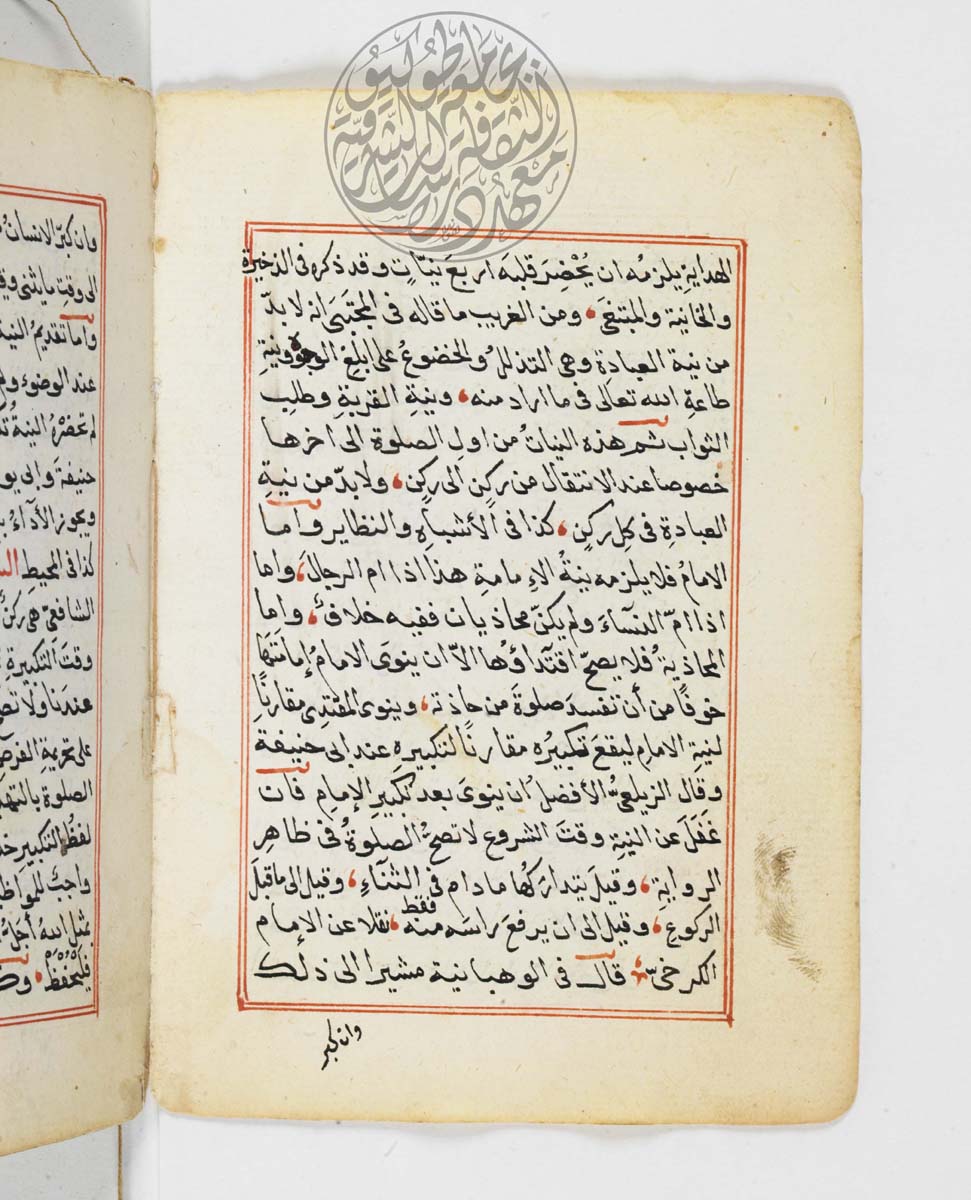 الهداية يلزمه ان يُحْضِرَ قلبه اربعَ نيّاتٍ وقد ذكره فى الذخيرة
والخانية والمبتغى، ومن الغريب ما قاله فى المجتبى انه لابدّ
من نية العبادةِ وهى التذللُ والخضوعُ على ابلغِ الوجوه ونية
طاعةِ الله تعالى فى ما اراد منه، ونيةِ القربةِ وطلبِ
الثواب ثم هذه النياتُ من اولِ الصلوة الى اخرها
خصوصا عند الانتقال من ركنٍ الى ركنٍ، ولابدّ من نيةِ
العبادةِ فى كل ركنٍ، كذا فى الأشباهِ والنظاير واما
الامامُ فلا يلزمه نيةُ الاِمامةِ هذا اذا ام الرجالَ، واما
اذا امّ النسآءَ ولم يكنّ محاذيات ففيه خلافٌ، واما
المحاذيةُ فلا يصحّ اقتداؤها الاّ ان ينوى الامامُ إمامتَها
خوفًا من أن تفسدَ صلوةَ من حاذته، وينوى المقتدى مقارنًا
لنية الامامِ ليقعَ تكبيرُه مقارنًا لتكبيره عند ابى حنيفة
وقال الزيلعىُّ الأفضلُ ان ينوىَ بعد تكبيرِ الإمامِ فان
غَفَلَ عن النيةِ وقتَ الشروع لا تصحُّ الصلوةُ فى ظاهرِ
الروايةِ، وقيلَ يتداركها مادام فى الثنآءِ، وقيل الى ما قبلَ
الركوعِ، وقيل الى ان يرفعَ راسَه منه فقط، نقلا عن الإمام
الكرخىّ، قال فى الوهبانية مشيرا الى ذلك
وان كبر
وان كبّر الانسانُ
الى وقتِ ما يثنى وقي
واما تقديمُ النية
عند الوضوء ولم
لم تحضرْهُ النيةُ
حنيفةَ وابى يو
ويجوز الأدآءُ
كذا فى المحيطِ
الشافعىّ هى ركن
وقتَ التكبيرةِ
عندنا ولا تص
على تحريمةِ الفرض
الصلوة بالته
لفظُ التكبير
واجبٌ للمواظ
بمثل الله أجلُّ
فليحفظْ، وك